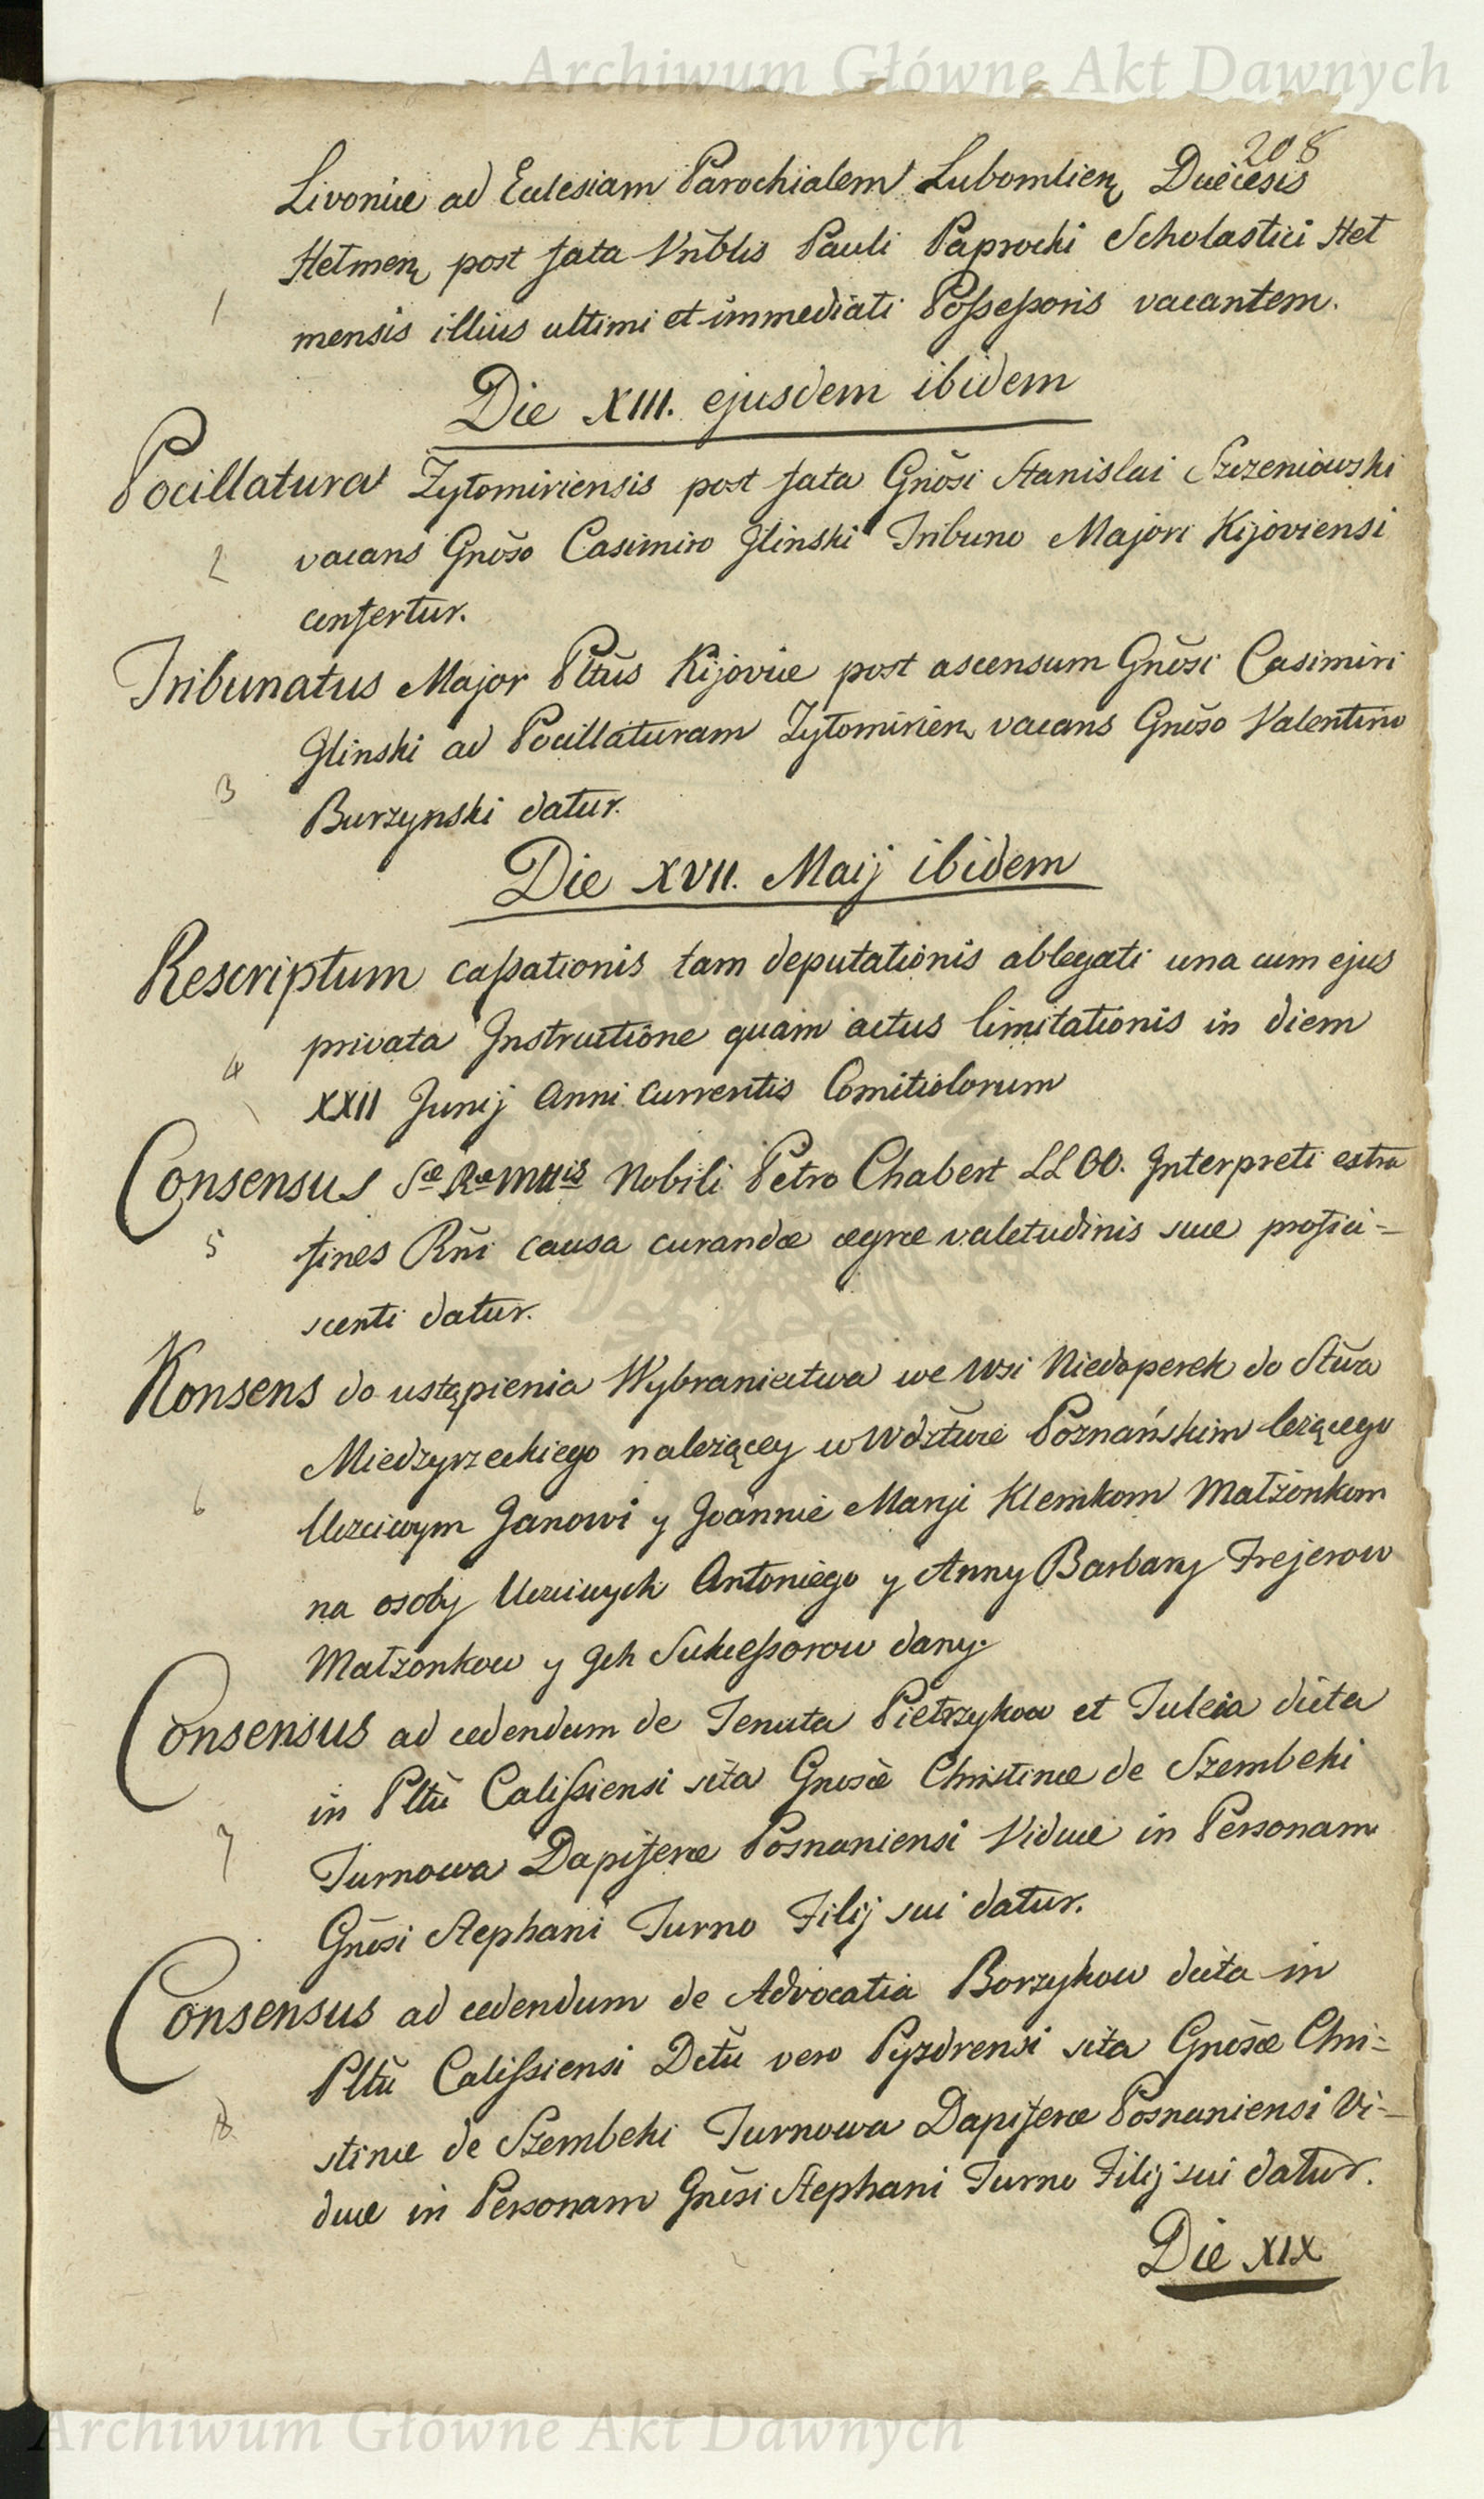 Archiwum Główne Akt Dawnych
208
Livoniæ ad Ecclesiam Parochialem Lubomlien Duecesis
Hełmen post fata Vnĕblis Pauli Paprocki Scholastici Heł
1
mensis illius ultimi et immediati Poſseſsoris vacantem.
Die XIII. ejusdem ibidem
Pocillatura Zytomiriensis post fata Gnŏsi Stanislai Szczeniowski
2
vacans Gnŏso Casimiro Glinski Tribuno Majori Kijoviensi
confertur.
Tribunatus Major Pltūs Kijoviæ post ascensum Gnŏsi Casimiri
Glinski ad Pocillaturam Zytomirien vacans Gnŏso Valentino
3
Burzynski datur.
Die XVII. Maij ibidem
Rescriptum caſsationis tam deputationis ablegati una cum ejus
privata Instructione quam actus limitationis in diem
4
XXII Junij Anni Currentis Comitiolorum
Consensus Sæ Ræ Mttis Nobili Petro Chabert LLOO. Interpreti extra
5
fines Rn̄i causa curandæ ægræ valetudinis suæ profici=
scenti datur.
Konsens do ustąpienia Wybraniectwa we Wsi Niedoperek do Stŭa
Miedzyrzeckiego nalezącey w Wdztŭie Poznańskim lezącego
6
Uczciwym Janowi y Joannie Maryi Klemkom Małżonkom
na osoby Uczciwych Antoniego y Anny Barbary Frejerow
Małzonkow y Jch Sukceſsorow dany.
Consensus ad cedendum de Tenuta Pietrzykow et Tuleia dicta
in Pltŭ Caliſsiensi sita Gnosæ Christinæ de Szembeki
7
Turnowa Dapiferæ Posnaniensi Viduæ in Personam
Gnŏsi Stephani Turno Filij sui datur.
Consensus ad cedendum de Advocatia Borzykow dicta in
Pltŭ Caliſsiensi Dctŭ vero Pyzdrensi sita Gnŏsæ Chri=
8
stinæ de Szembeki Turnowa Dapiferæ Posnaniensi Vi=
duæ in Personam Gnŏsi Stephani Turno Filij sui datur.
Die XIX
Archiwum Główne Akt Dawnych